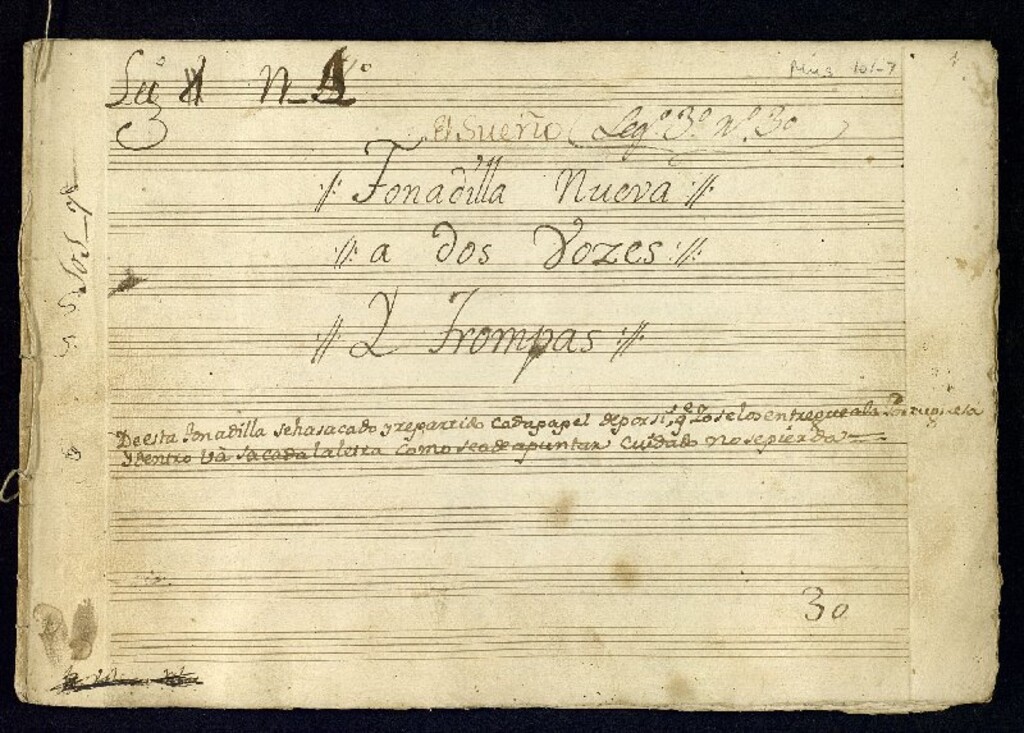 Mus 101-7
El Sueño (Leg.º 3.º N.º 30
Tonadilla Nueva
a dos Vozes
Y Trompas
De esta Tonadilla sehasacado yrepartido Cadapapel deporsi, q.e Yo selos entregue ala Sõra
ydentro vâ sacada laletra Como seade apuntar Cuidado nosepierda
30